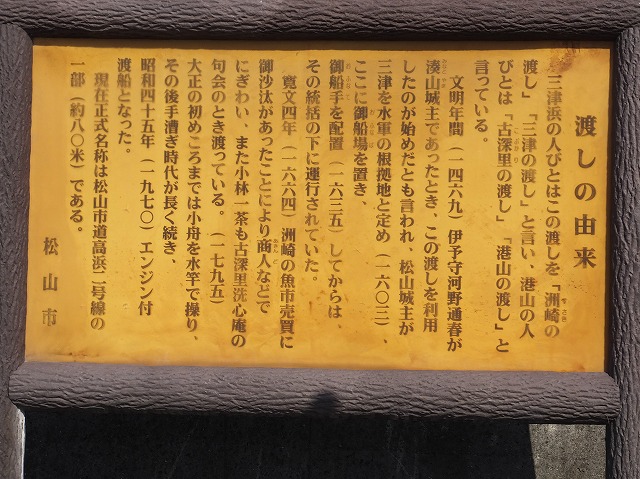 渡しの由来
三津浜の人びとはこの渡しを「洲崎の
渡し」「三津の渡し」と言い、港山の人
びとは「古深里の渡し」「港山の渡し」と
言っている。
文明年間（一四六九）伊予守河野通春が
湊山城主であったとき、この渡しを利用
したのが始めだとも言われ、松山城主が
三津を水軍の根拠地と定め（一六〇三）、
ここに御船場を置き、
御船手を配置（一六三五）してからは、
その統括の下に運行されていた。
寛文四年（一六六四）洲崎の魚市売買に
御沙汰があったことにより商人などで
にぎわい、また小林一茶も古深里洗心庵の
句会のとき渡っている。（一七九五）
大正の初めころまでは小舟を水竿で操り、
その後手漕ぎ時代が長く続き、
昭和四十五年（一九七〇）エンジン付
渡船となった。
現在正式名称は松山市道高浜二号線の
一部（約八〇米）である。
松山市